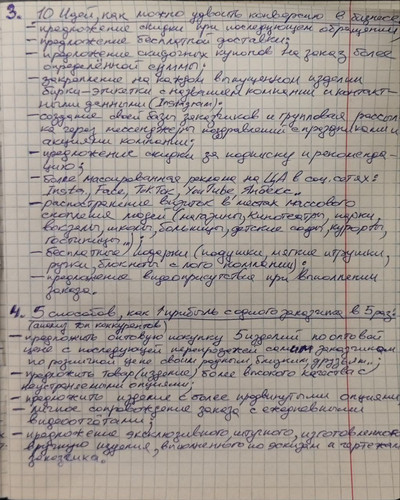 3. 10 идей, как можно удвоить конверсию в бизнесе
- предложение скидки при последующем обращении;
- предложение бесплатной доставки;
- предложение скидочных купонов на заказ более
определенной суммы;
- закрепление на каждом выпущенном изделии
бирки-этикетки с названием компании и контакт-
ными данными (Instagram);
- создание своей базы заказчиков и групповая рассыл-
ка через мессенджеры поздравлений с праздниками и
акциями компании;
- предложение скидки за подписку и рекоменда-
цию;
- более массированная реклама на ЦА в соц. сетях:
Insta, Face, TikTok, YouTube, Яндекс..
- распространение визиток в местах массового
скопления людей (магазины, кинотеатры, парки,
вокзалы, школы, больницы, детские сады, курорты,
гостиницы..);
- бесплатные подарки (подушки, мягкие игрушки,
ручки, блокноты с лого компании);
- предложение видеоприсутствия при выполнении
заказа.
4. 5 способов, как ↑ прибыль с одного заказчика в 5 раз
(анализ конкурентов)
- предложить оптовую покупку 5 изделий по оптовой
цене с последующей перепродажей самим заказчиком
по розничной цене своим родным, близким, друзьям..;
- предложить товар (изделие) более высокого качества с
неустраняемыми опциями;
- предложить изделие с более продвинутыми опциями
- личное сопровождение заказа с ежедневными
видеоотчетами;
- предложение эксклюзивного, штучного, изготовленного
вручную изделия, выполненного по эскизам и чертежам
заказчика.